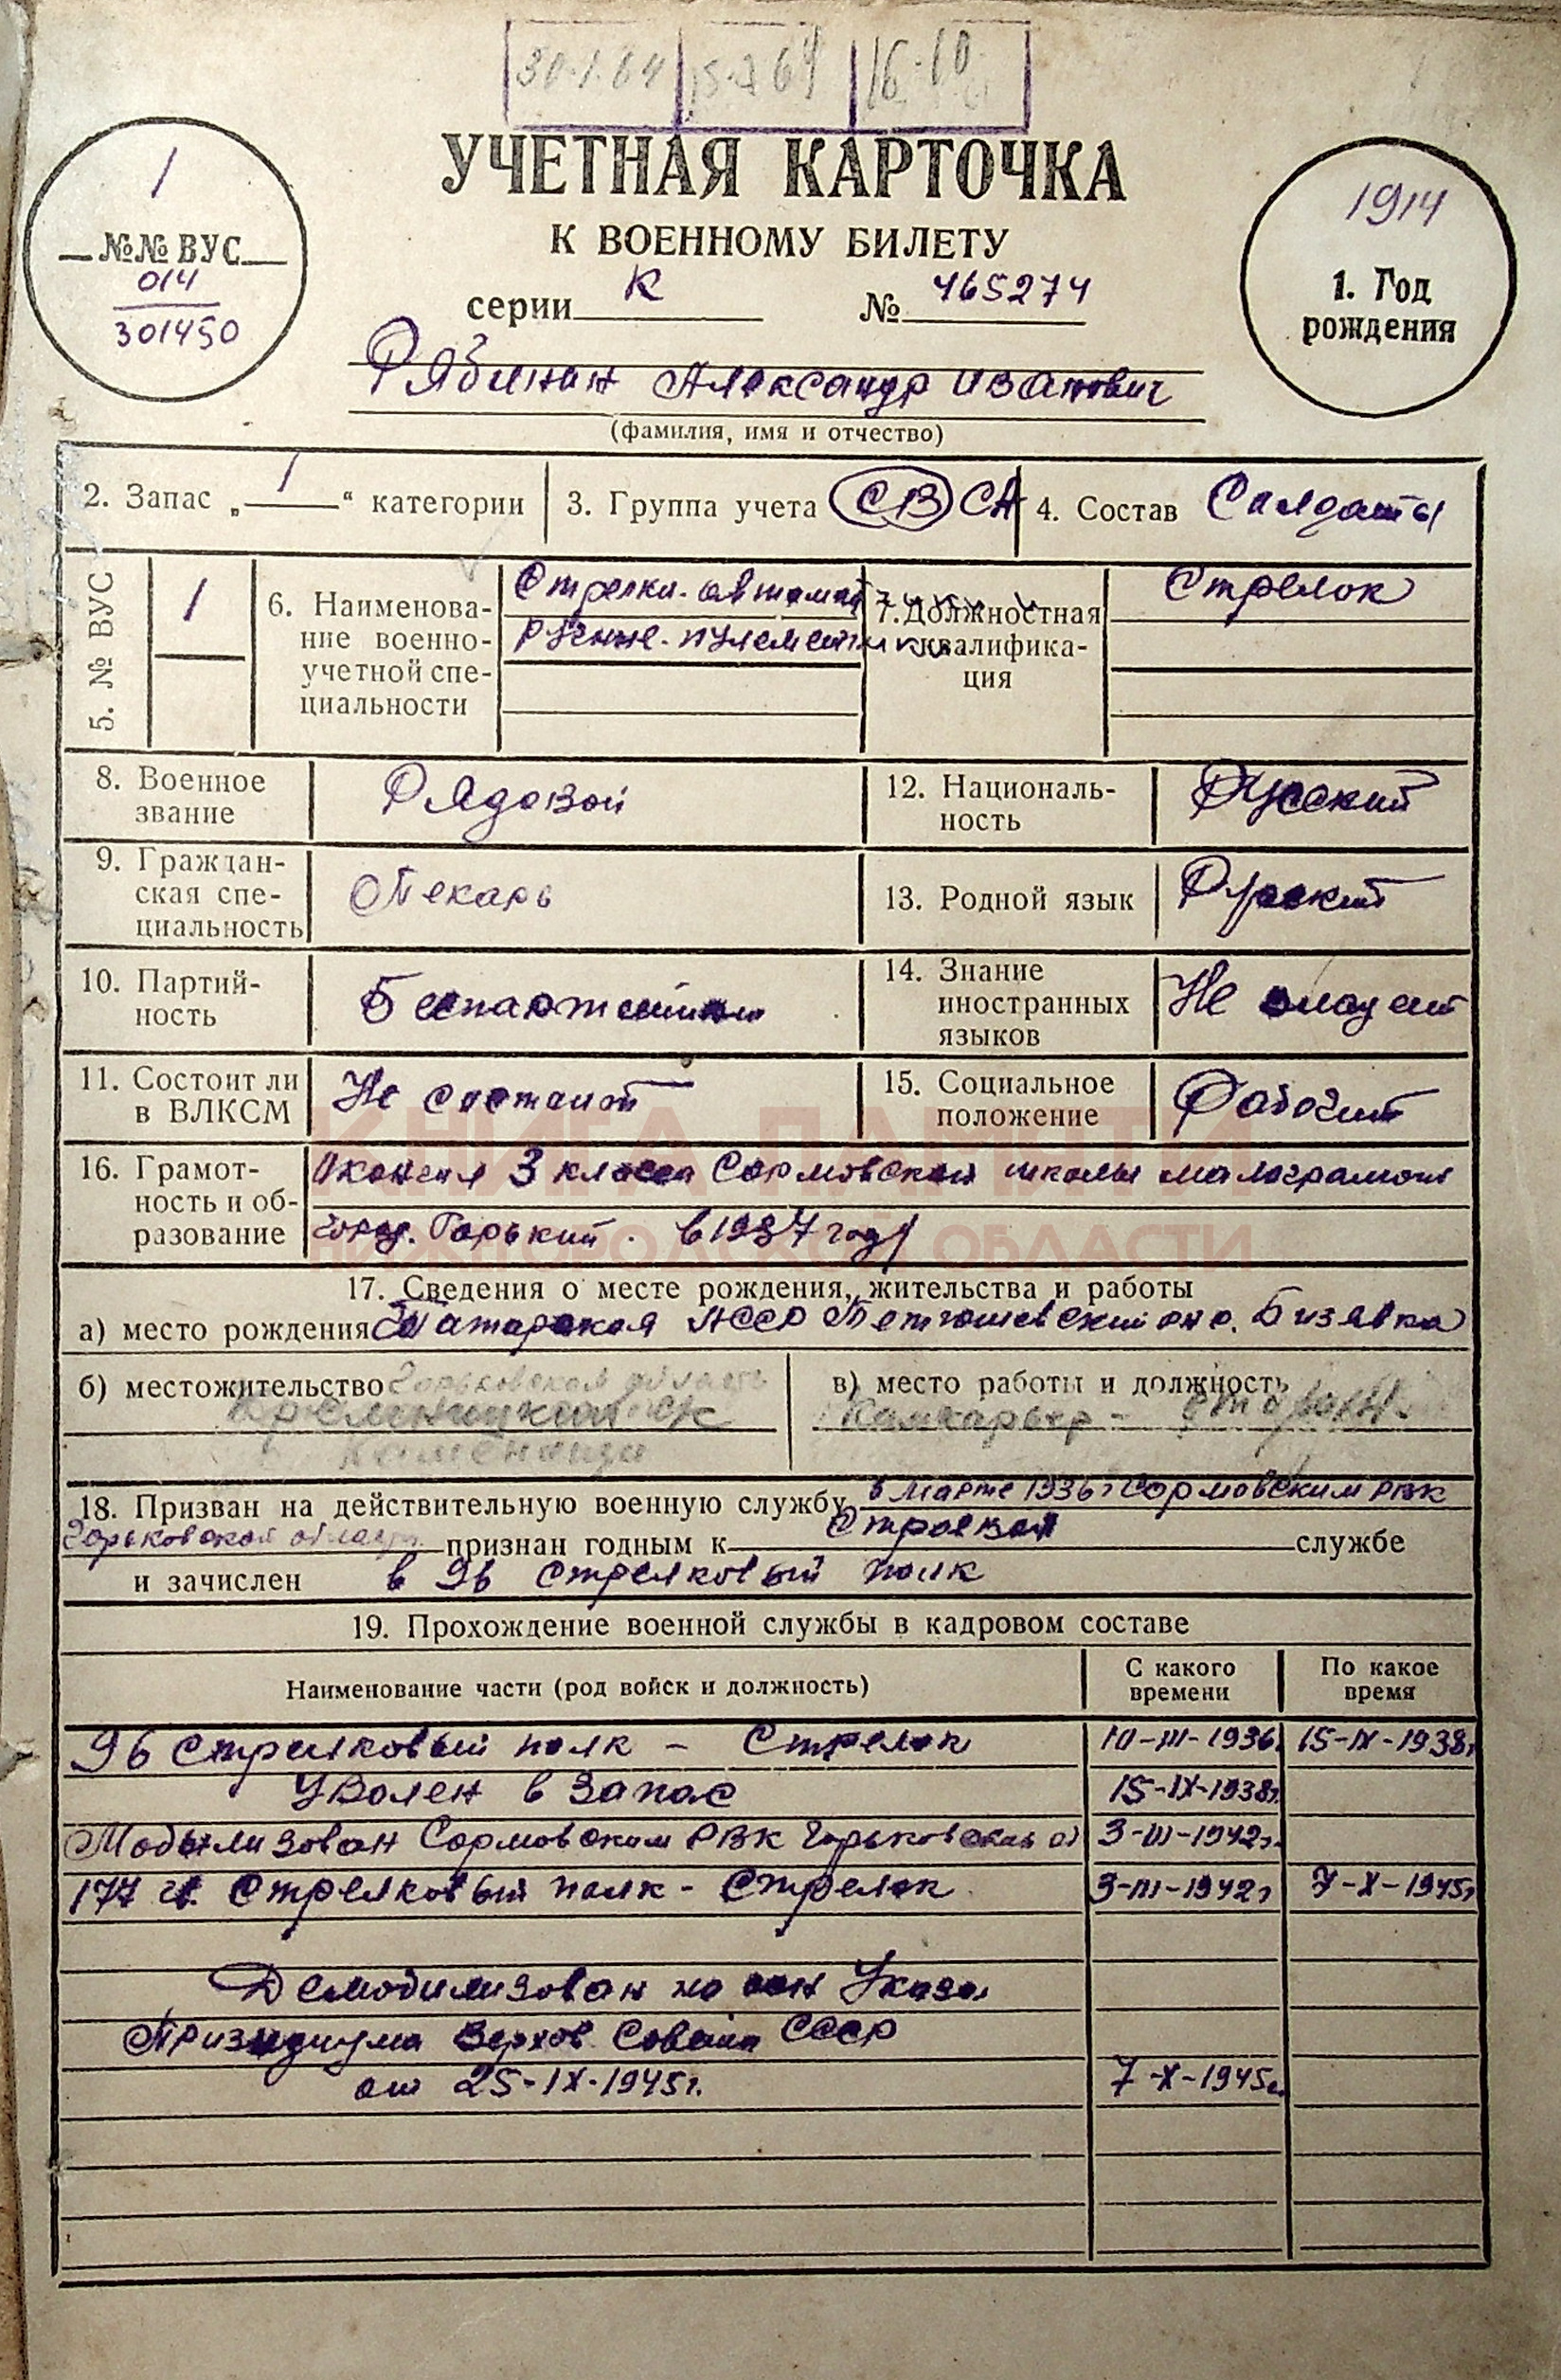 30.1.64
16.10
УЧЕТНАЯ КАРТОЧКА
К ВОЕННОМУ БИЛЕТУ
серии К № 465274
1
№№ ВУС
014
301450
1914
1. Год
рождения
Рябинин Александр Иванович
(фамилия, имя и отчество)
2. Запас „ 1 “ категории
3. Группа учета СВ СА
4. Состав Солдаты
5. № ВУС 1
6. Наименова-
ние военно-
учетной спе-
циальности
Стрелки-автомат
Ручные-пулеметчики
7. Должностная
квалифика-
ция
Стрелок
8. Военное
звание
Рядовой
12. Националь-
ность
Русский
9. Граждан-
ская спе-
циальность
Пекарь
13. Родной язык Русский
10. Партий-
ность
Беспартийный
14. Знание
иностранных
языков
Не владеет
11. Состоит ли
в ВЛКСМ
Не состоит
15. Социальное
положение
Рабочий
16. Грамот-
ность и об-
разование
Окончил 3 класса Сормовской школы малограмотн
город. Горький. в 1937 году
КНИГА ПАМЯТИ
НИЖЕГОРОДСКОЙ ОБЛАСТИ
17. Сведения о месте рождения, жительства и работы
а) место рождения Татарская АССР Тетюшевский Бизявка
б) местожительство Горьковская область
в) место работы и должность
18. Призван на действительную военную службу в марте 1936г Сормовским РВК
Горьковской област. признан годным к Строевой службе
и зачислен в 96 стрелковый полк
19. Прохождение военной службы в кадровом составе
Наименование части (род войск и должность)
С какого
времени
По какое
время
96 Стрелковый полк - Стрелок 10-III-1936г 15-IX-1938г
Уволен в Запас 15-IX-1938г.
Мобилизован Сормовским РВК Горьковской о) 3-III-1942г.
177 гв. Стрелковый полк - Стрелок 3-III-1942г 7-X-1945г
Демобилизован на осн Указа
Призидиума Верхов. Совета СССР
от 25-IX-1945г. 7-X-1945г.